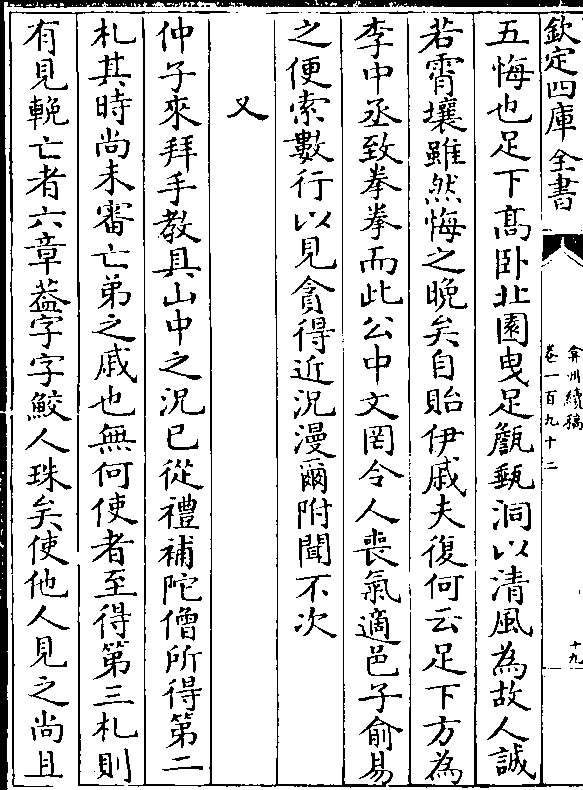 欽定四庫全書
弇州續稿
卷一百九十二
十九
五悔也足下髙卧北園曳足甗甀洞以清風為故人誠
若霄壤雖然悔之晚矣自貽伊戚夫復何云足下方為
李中丞致拳拳而此公中文罔令人喪氣適邑子俞易
之便索數行以見貪得近況漫爾附聞不次
又
仲子來拜手教具山中之況已從禮補陀僧所得第二
札其時尚未審亡弟之戚也無何使者至得第三札則
有見輓亡者六章葢字字鮫人珠矣使他人見之尚且